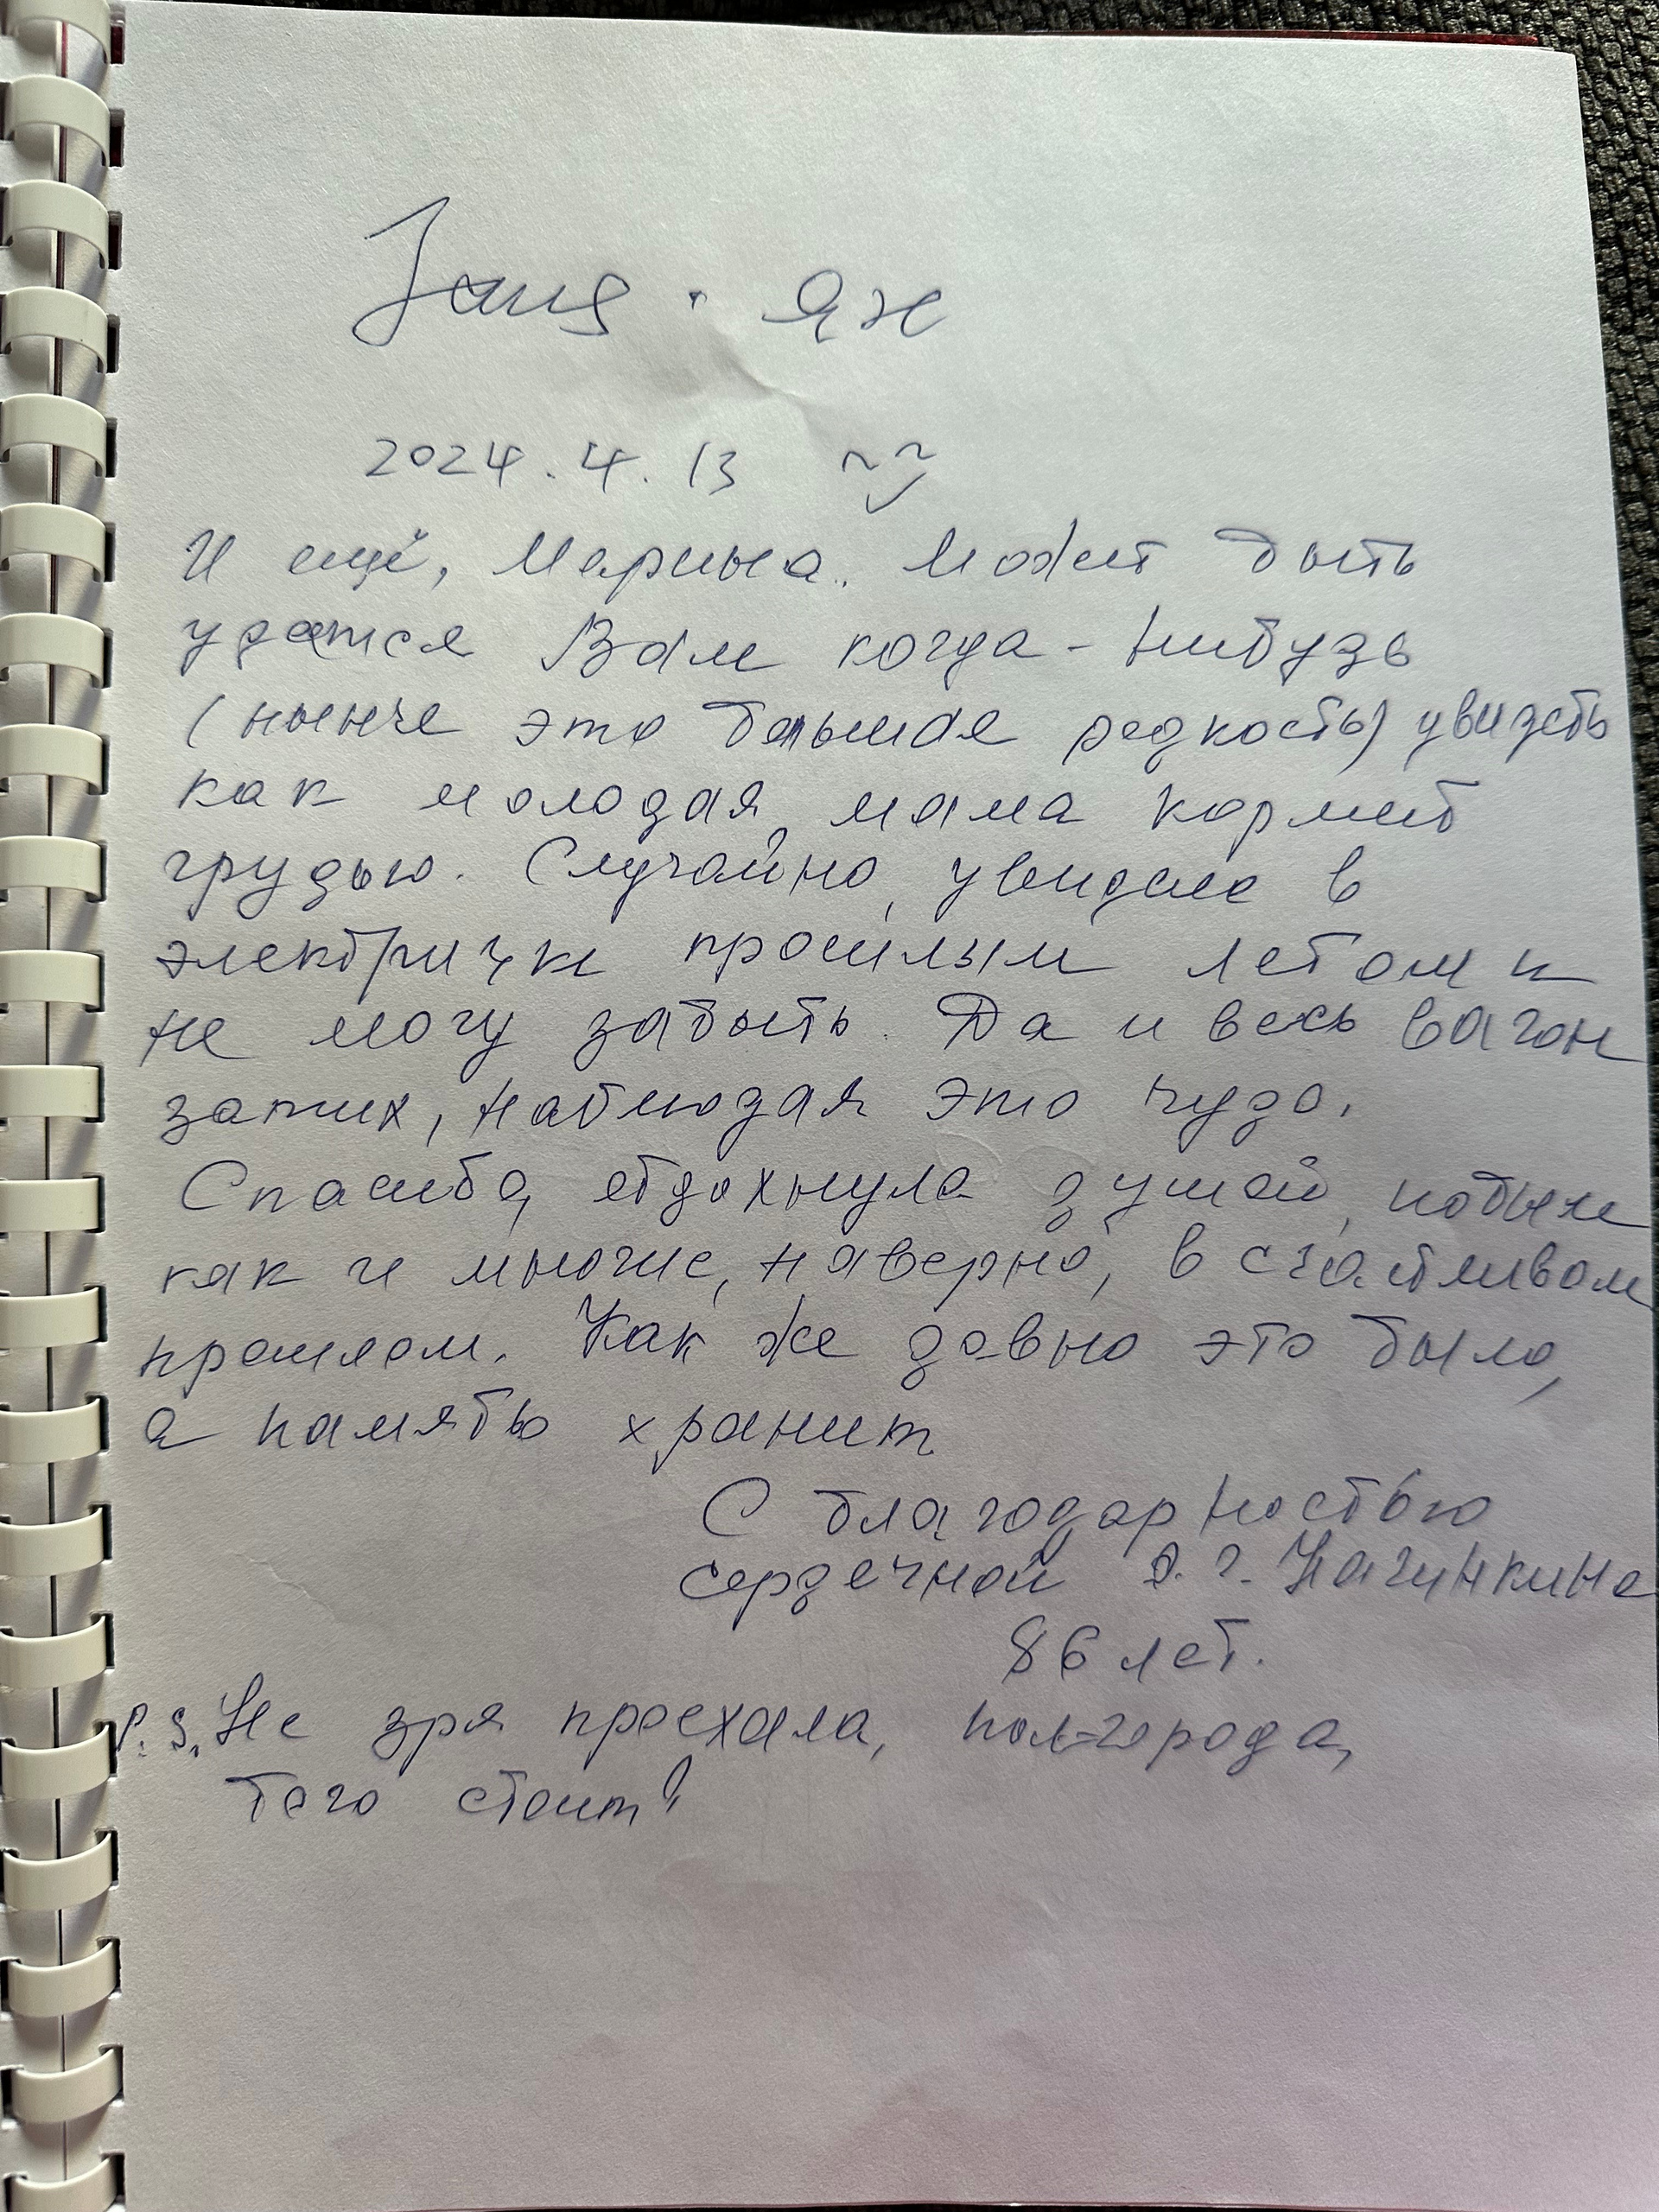 Ян
2024.4.13
И ещё, Марина. Может быть
удастся Вам когда-нибудь
(нынче это большая редкость) увидеть
как молодая мама кормит
грудью. Случайно увидала в
электричке прошлым летом и
не могу забыть. Да и весь вагон
затих, наблюдая это чудо.
Спасибо, отдохнула душой, побыла
как и многие, наверно, в счастливом
прошлом. Как же давно это было,
а память хранит
С благодарностью
сердечной Э. Г.
86 лет.
P.S. Не зря проехала, пол-города,
того стоит!